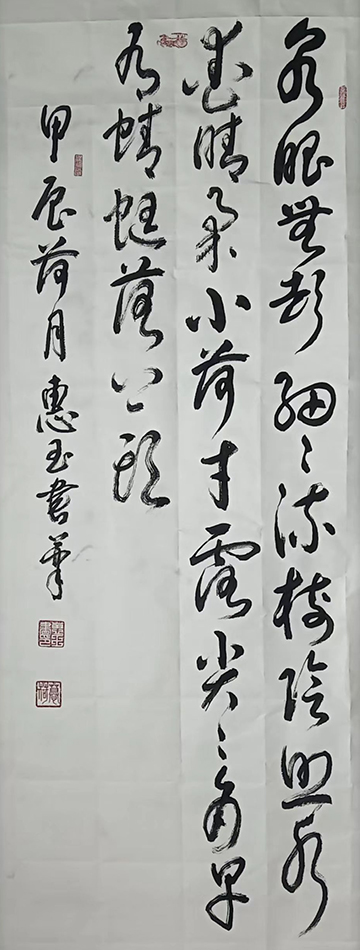 泉眼無聲細〻流樹陰照水
愛晴柔小荷才露尖〻角早
有蜻蜓落上頭
甲辰荷月惠玉書